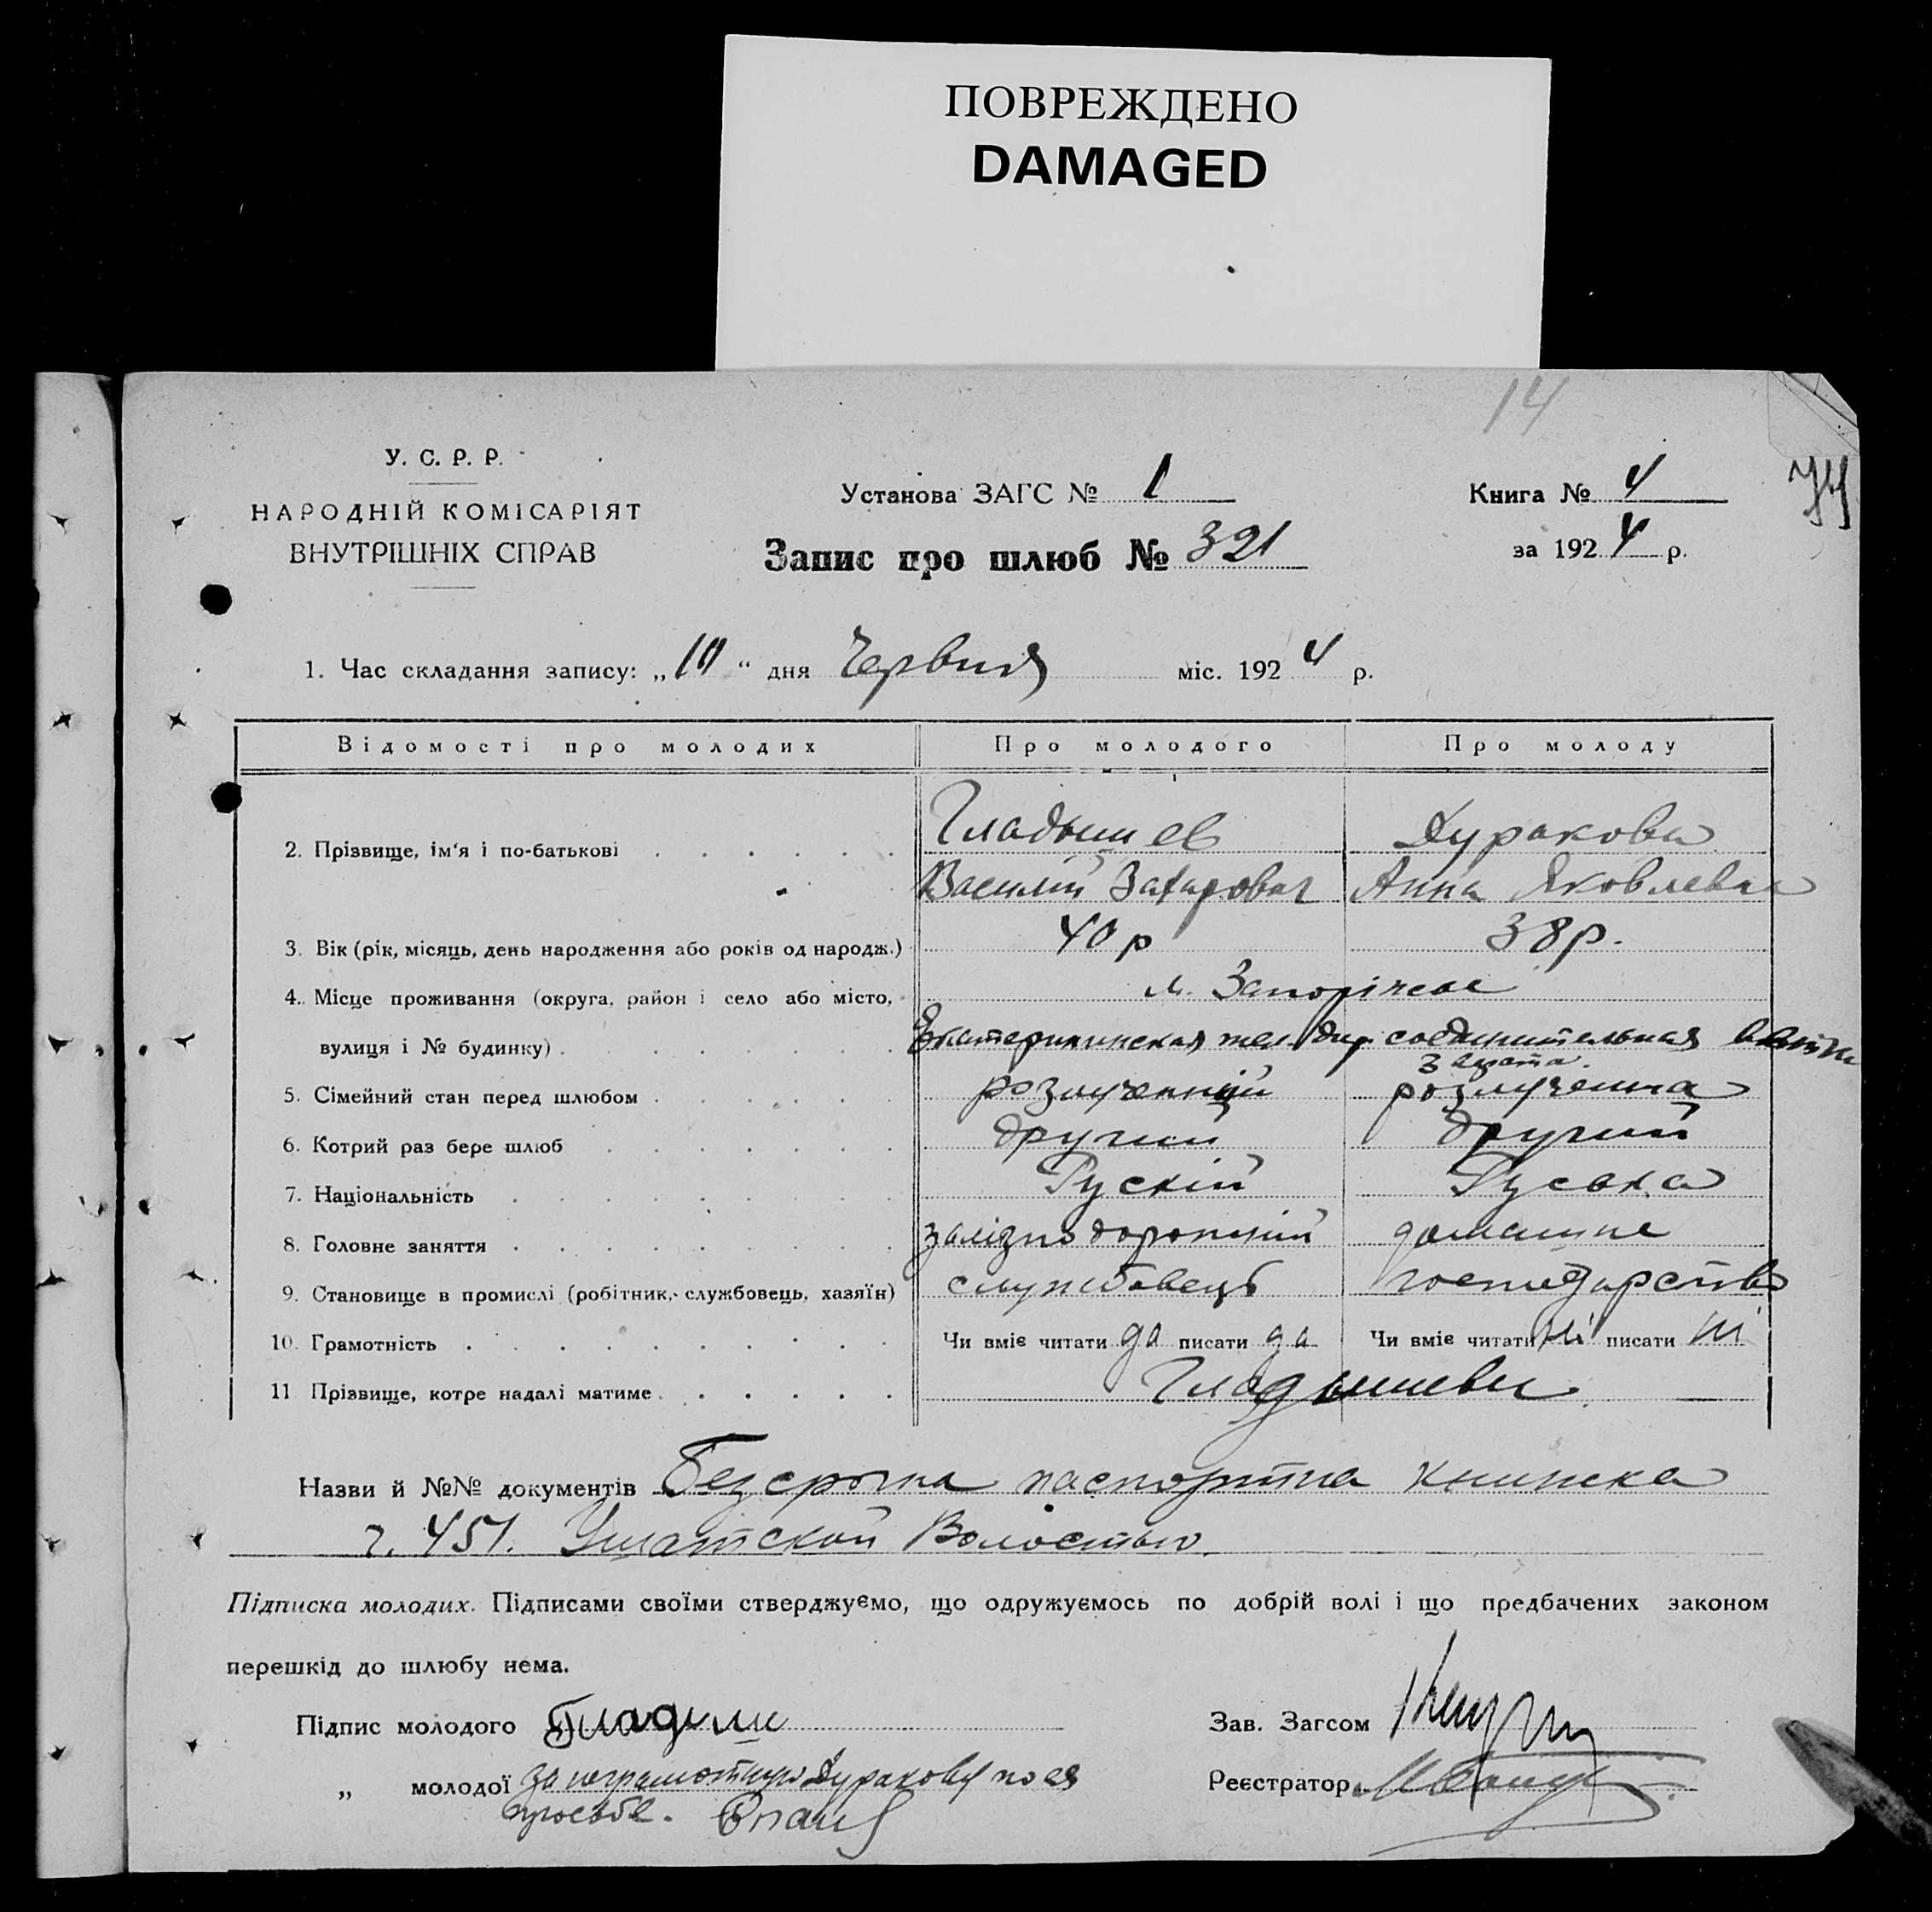 ПОВРЕЖДЕНО
DAMAGED
14
74
У. С. Р. Р.
НАРОДНІЙ КОМІСАРІЯТ
ВНУТРІШНІХ СПРАВ
Установа ЗАГС № 1
Запис про шлюб № 321
Книга № 4
за 1924 р.
1. Час складання запису: „10“ дня Червня міс. 1924 р.
Відомості про молодих Про молодого Про молоду
Гладышев Дуракова
2. Прізвище, ім'я і по-батькові
Василий Захарович Анна Яковлевна
3. Вік (рік, місяць, день народження або років од народж.) 40 р 38 р.
4. Місце проживання (округа, район і село або місто, м. Запоріжжє
вулиця і № будинку) Екатерининская жел. дор. соединительная
5. Сімейний стан перед шлюбом розлученний розлученна
6. Котрий раз бере шлюб другий другий
7. Національність Рускій Руська
8. Головне заняття залізнодорожній домашне
9. Становище в промислі (робітник, службовець, хазяїн) службовець господарство
10. Грамотність Чи вміє читати да писати да Чи вміє читати ні писати ні
11 Прізвище, котре надалі матиме Гладышевы
Назви й №№ документів Безсрочна паспортна книжка
ч. 451. Волостью.
Підписка молодих. Підписами своїми стверджуємо, що одружуємось по добрій волі і що предбачених законом
перешкід до шлюбу нема.
Підпис молодого Гладыш
Зав. Загсом
„ молодої за неграмотную Дуракову по ея
просьбе.
Реєстратор